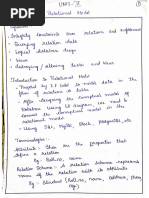 UNIT-II
Relational Model
Integrity Constraints Over relations and enforced
Querying relation data
Logical database design
View
Destroying / altering tables and Views
Introduction to Relational Model
Proposed by E.F Codd to model data in the
form of relations or tables.
After designing the conceptual model of
Database using ER diagram, we need to
convert the conceptual model into relational
model.
Using SQL, MySQL etc.
Terminologies:
Attribute: Attributes are the properties that
define a relation
Eg: Roll.no, Name
Relation Schema: A relation schema represents
name of the relation with its attributes
Eg: Student (Roll.no, name, address, phone,
age)